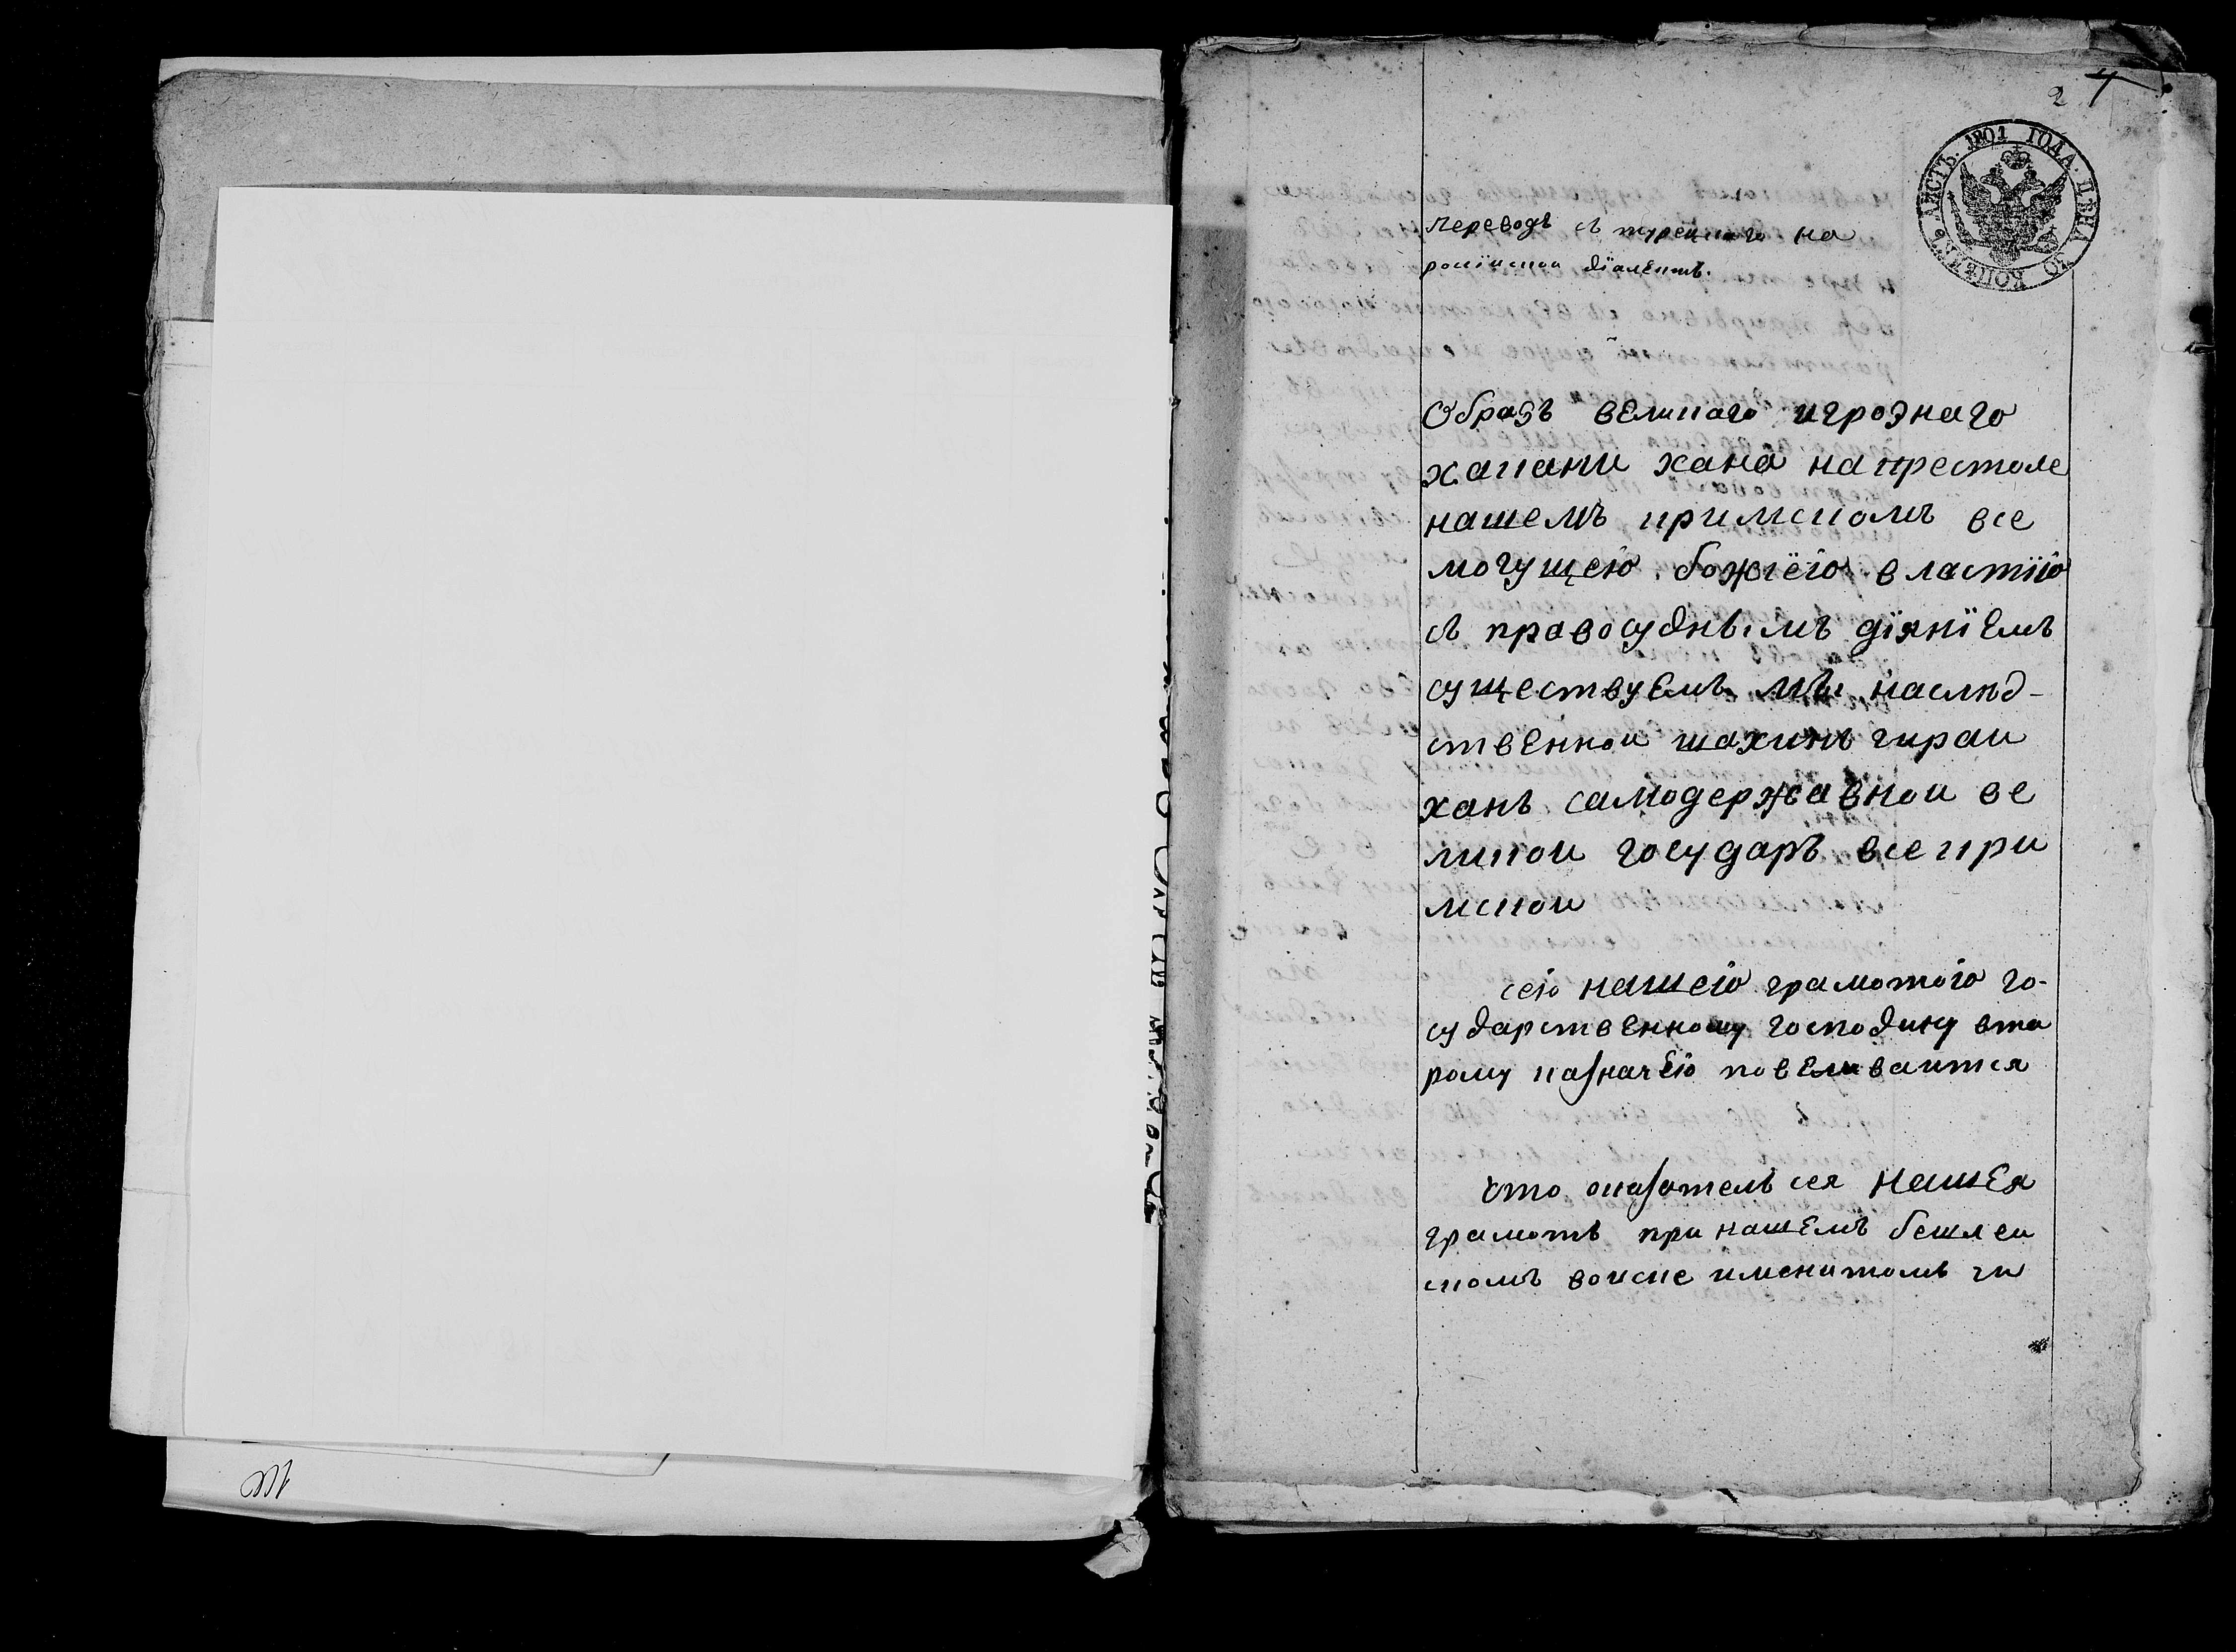 2 4
ЛИСТЪ. 1801 ГОДА. ЦѢНА 30 КОПѢЕКЪ
переводъ съ турецкаго на
росїискои дїалектъ.
Образъ великаго игрознаго
хакани хана на престоле
нашемъ кримскомъ все
могущею божїею властїю
съ правосуднымъ дїянїемъ
существуемъ мы наслѣд-
ственнои шахинъ гираи
ханъ самодержавнои ве
ликои государь всекри
мскои
сею нашею грамотою го-
сударственному господину вта
рому казначею повелеваится
что оказатель сея нашея
грамотъ при нашемъ бешлеи
скомъ воиске именитомъ ги